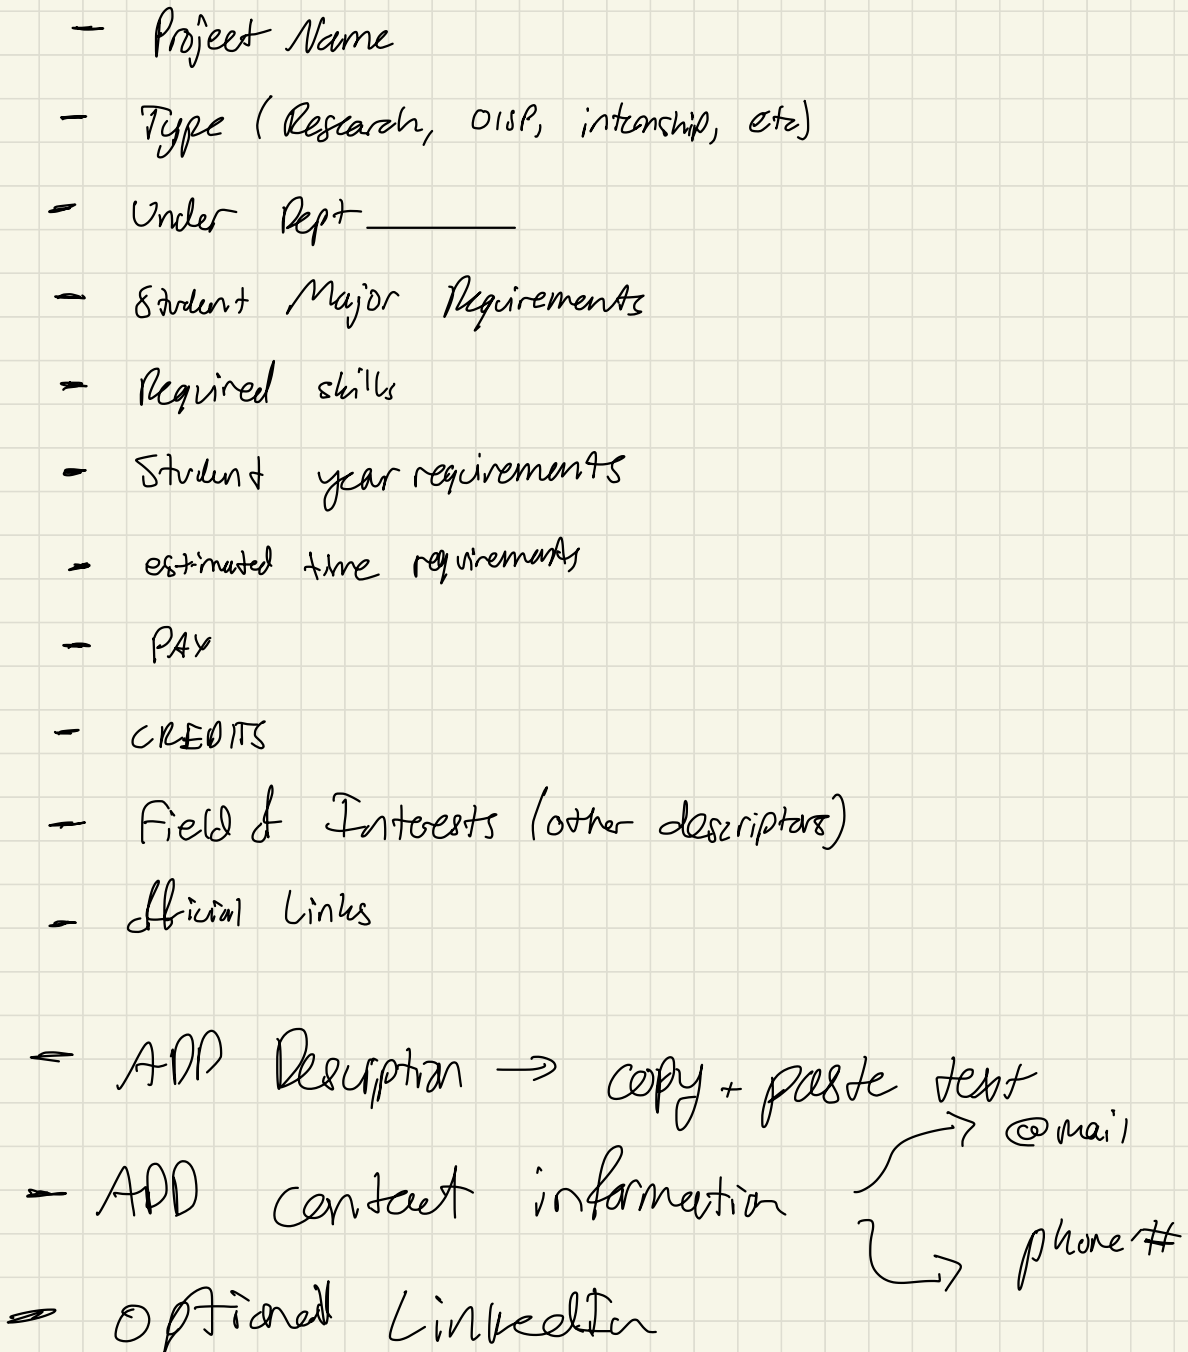 - Project Name
- Type (Research, OISP, internship, etc)
- Under Dept ______
- Student Major Requirements
- Required skills
- Student year requirements
- estimated time requirements
- PAY
- CREDITS
- Field of Interests (other descriptors)
- Official Links
- ADD Description → copy + paste text
- ADD contact information → @mail
→ phone #
- Optional LinkedIn